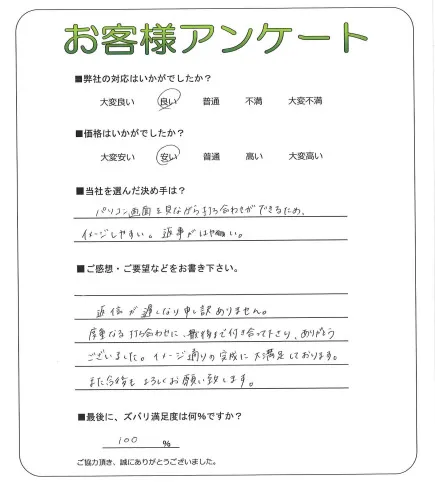 お客様アンケート
■弊社の対応はいかがでしたか？
大変良い　良い　普通　不満　大変不満
■価格はいかがでしたか？
大変安い　安い　普通　高い　大変高い
■当社を選んだ決め手は？
パソコン画面を見ながら打ち合わせができるため、
イメージしやすい。返事がはやい。
■ご感想・ご要望などをお書き下さい。
返信が遅くなり申し訳ありません。
度重なる打ち合わせに、最後まで付き合って下さり、ありがとう
ございました。イメージ通りの完成に大満足しております。
また今後もよろしくお願い致します。
■最後に、ズバリ満足度は何%ですか？
100 %
ご協力頂き、誠にありがとうございました。